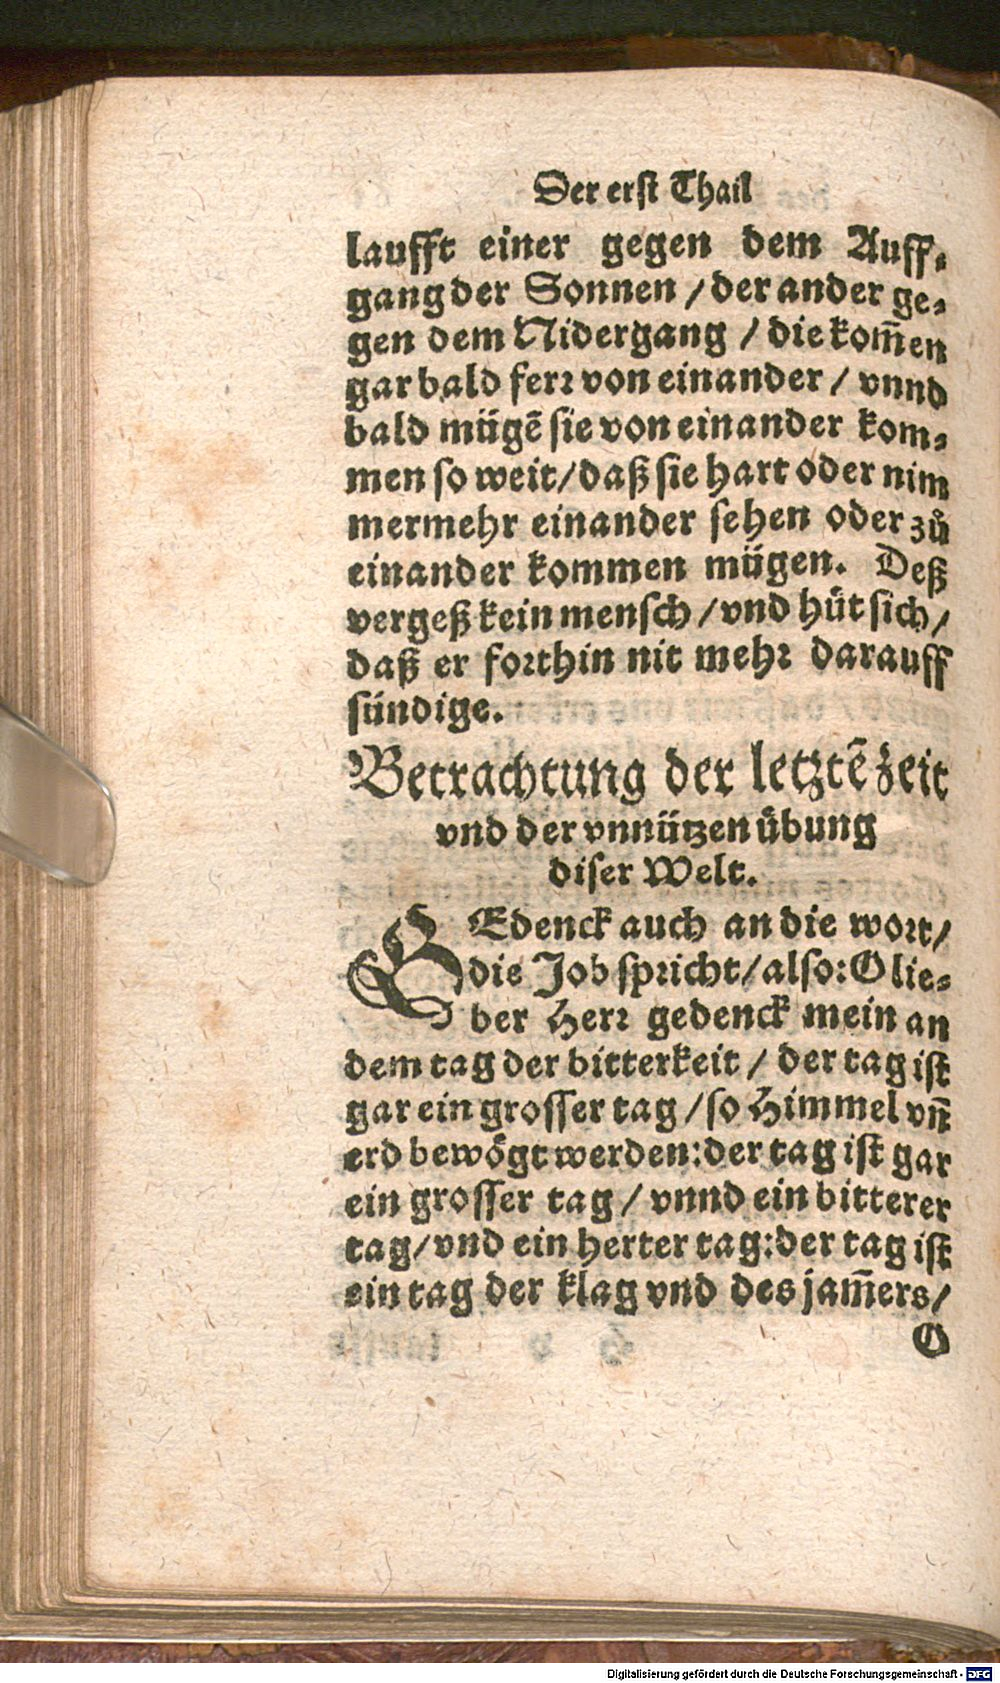 Der erst Thail
laufft einer gegen dem Auff⸗
gang der Sonnen / der ander ge⸗
gen dem Nidergang / die kom̃en
gar bald ferꝛ von einander / vnnd
bald mügẽ sie von einander kom⸗
men so weit / daß sie hart oder nim
mermehr einander sehen oder zů
einander kommen mügen. Deß
vergeß kein mensch / vnd hůt sich /
daß er foꝛthin nit mehꝛ darauff
sündige.
Betrachtung der letztẽ zeit
vnd der vnnützen übung
diser Welt.
GEdenck auch an die woꝛt /
die Job spꝛicht / also: O lie⸗
ber Herꝛ gedenck mein an
dem tag der bitterkeit / der tag ist
gar ein grosser tag / so Himmel vñ
erd bewögt werden: der tag ist gar
ein grosser tag / vnnd ein bitterer
tag / vnd ein herter tag: der tag ist
ein tag der klag vnd des jam̃ers /
O
Digitalisierung gefördert durch die Deutsche Forschungsgemeinschaft - DFG